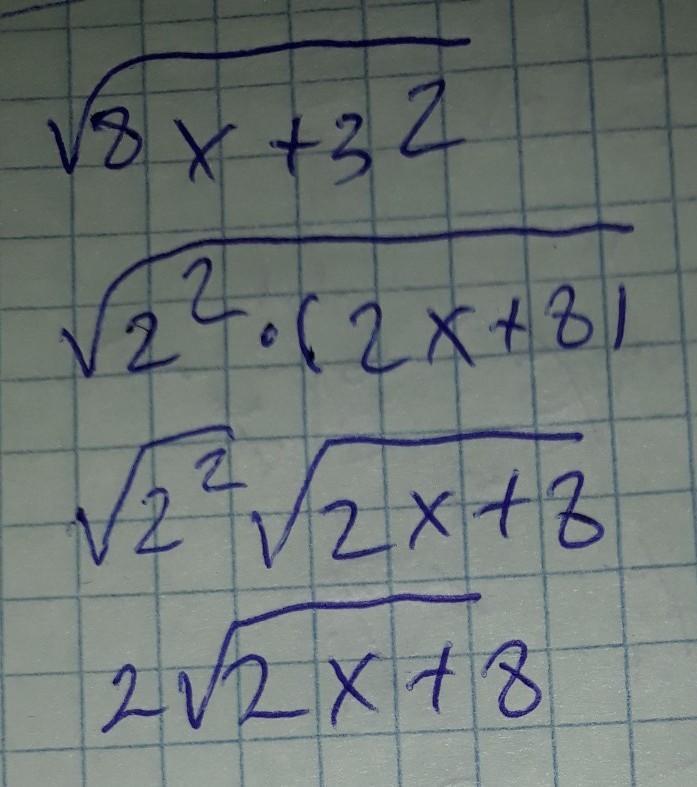 √8x+32
√2²·(2x+8)
√2² √2x+8
2√2x+8